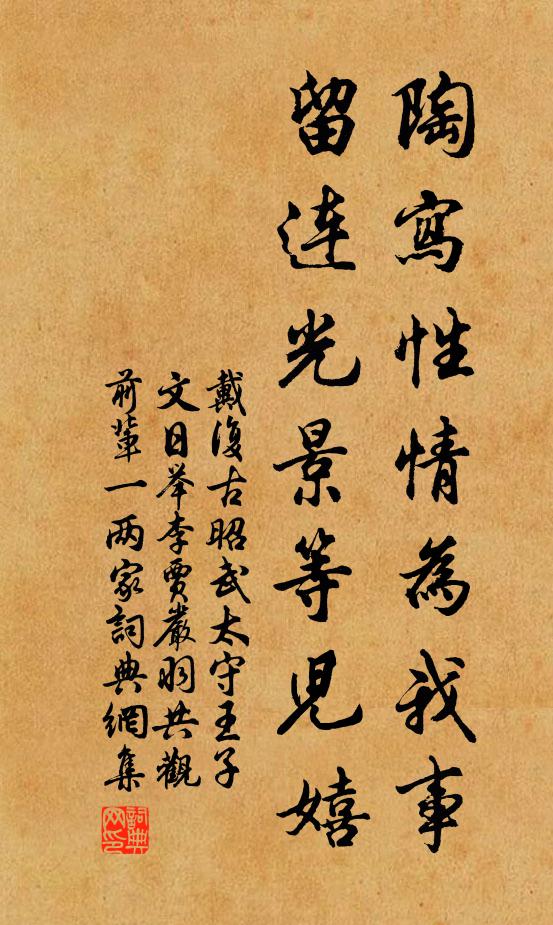 陶寫性情為我事
留連光景等児嬉
戴復古昭武太守王子
文日举李賈嚴羽共觀
前輩一两家詞典網集
詞典网印